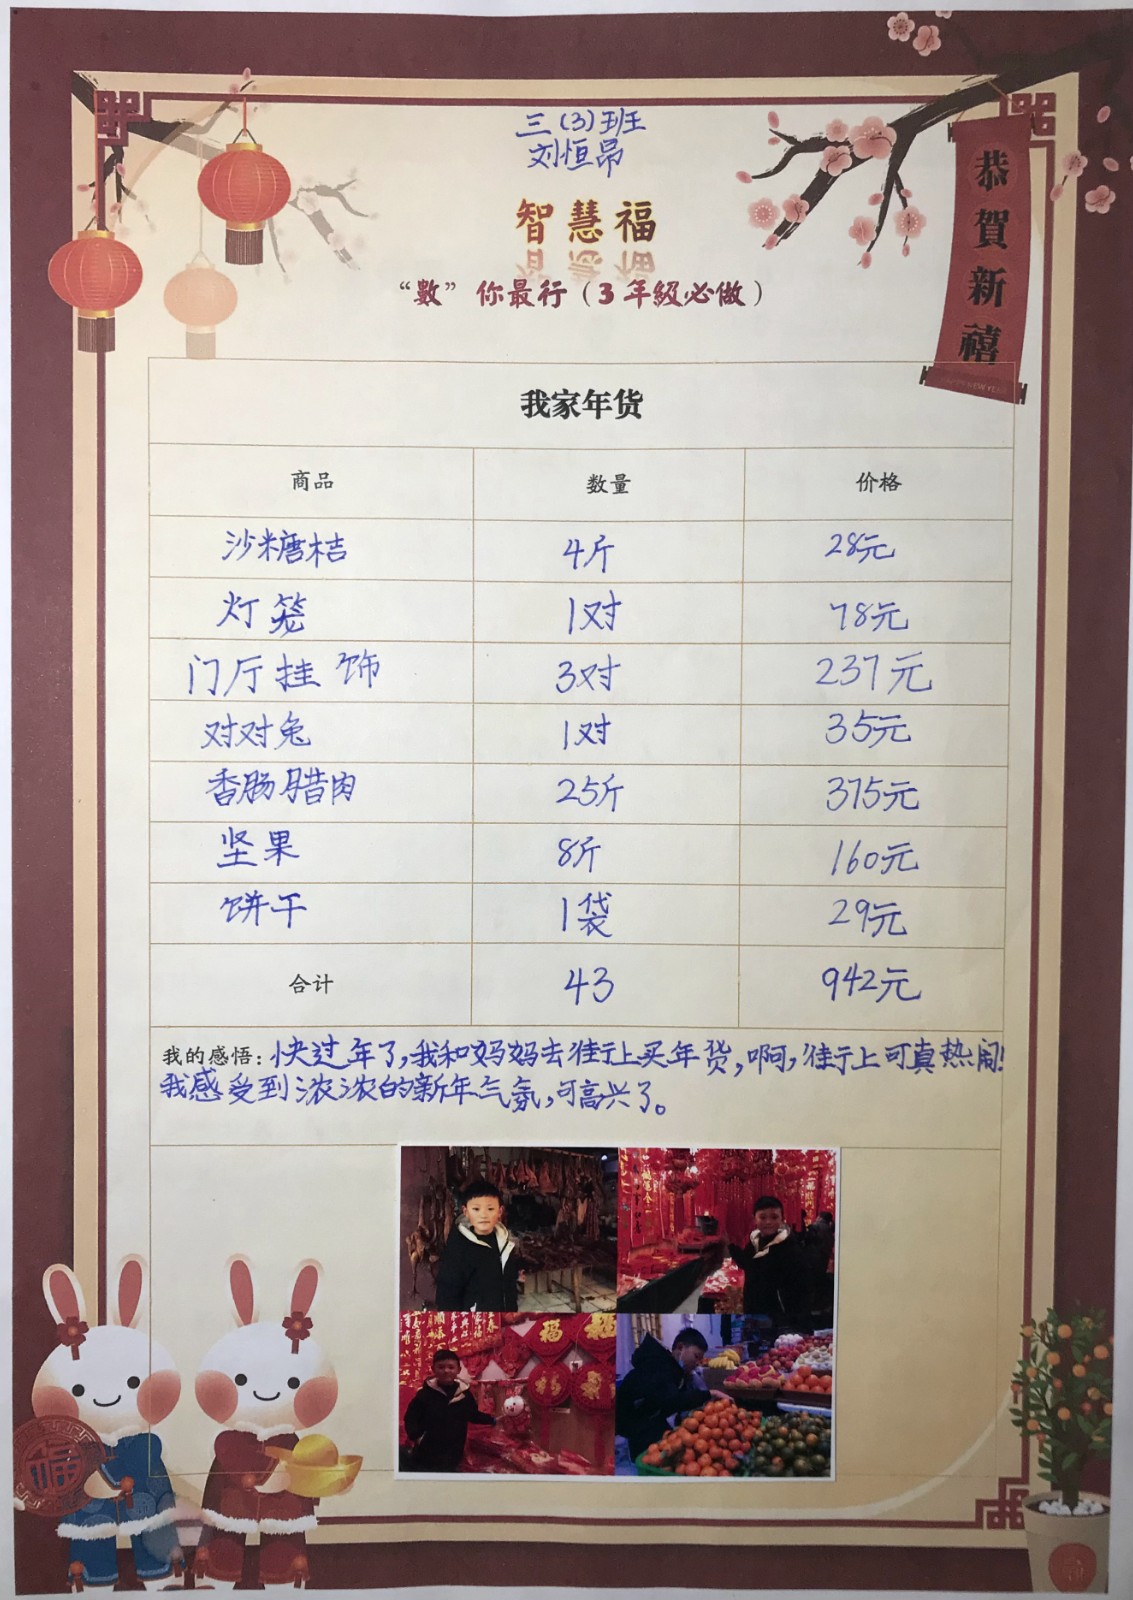 三(3)班
刘恒昂
智慧福
“数”你最行（3年级必做）
恭贺新禧
我家年货
商品 数量 价格
沙糖桔 4斤 28元
灯笼 1对 78元
门厅挂饰 3对 237元
对对兔 1对 35元
香肠腊肉 25斤 375元
坚果 8斤 160元
饼干 1袋 29元
合计 43 942元
我的感悟：快过年了，我和妈妈去街上买年货，啊，街上可真热闹！
我感受到浓浓的新年气氛，可高兴了。
福
福